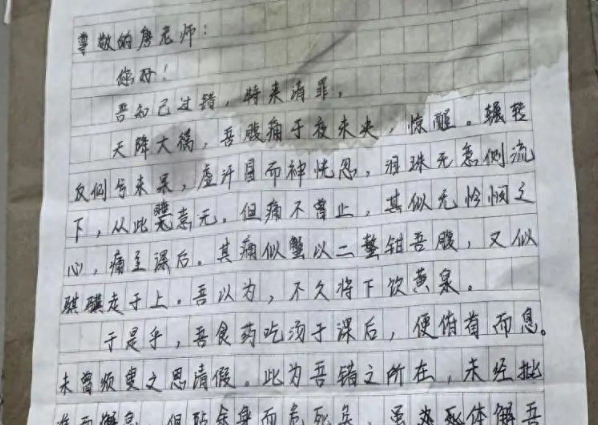 尊敬的唐老师：
你好！
吾知己过错，特来清罪。
天降大祸，吾腹痛于夜未央，惊醒。辗转
反侧兮未果，虚汗冒而神恍忽，泪珠无意侧流
下，从此意无。但痛不曾止，其似无怜悯之
心，痛至课后。其痛似蟹以二螯钳吾腹，又似
骐骥走于上。吾以为，不久将下饮黄泉。
于是乎，吾食药吃汤于课后，便俯首而息。
未曾须臾之思清假。此为吾错之所在，未经批
死体解吾